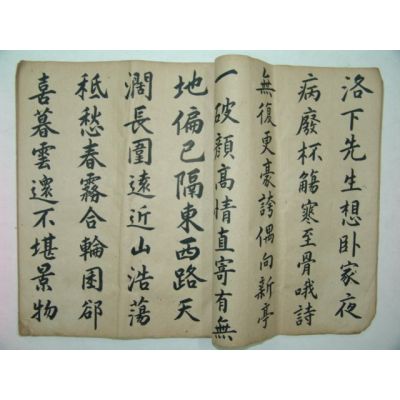 洛下先生想卧家夜
病廢杯觴寒至骨哦詩
無復更豪誇偶向新亭
一破顏高情直寄有無
地偏已隔東西路天
濶長圍遠近山浩蕩
秪愁春霧合輪囷郤
喜暮雲還不堪景物